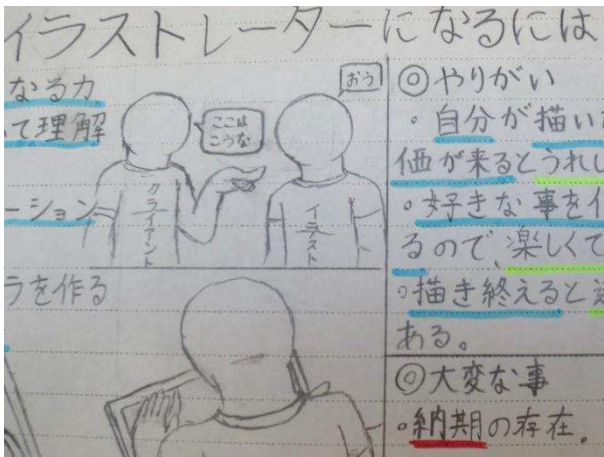 イラストレーターになるには
なる力
て理解
ーション
ラを作る
ここは
こうな
おう
クライアント
イラスト
◎やりがい
・自分が描い
価が来るとうれし
・好きな事を
るので、楽しくて
・描き終えると
ある。
◎大変な事
・納期の存在。